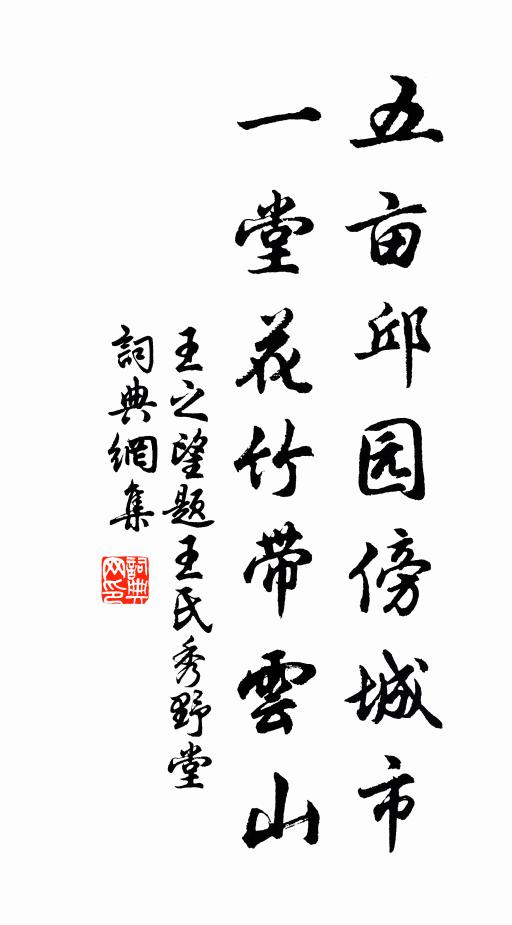 五亩邱园傍城市
一堂花竹带雲山
王之望题王氏秀野堂
詞典網集
詞典网印